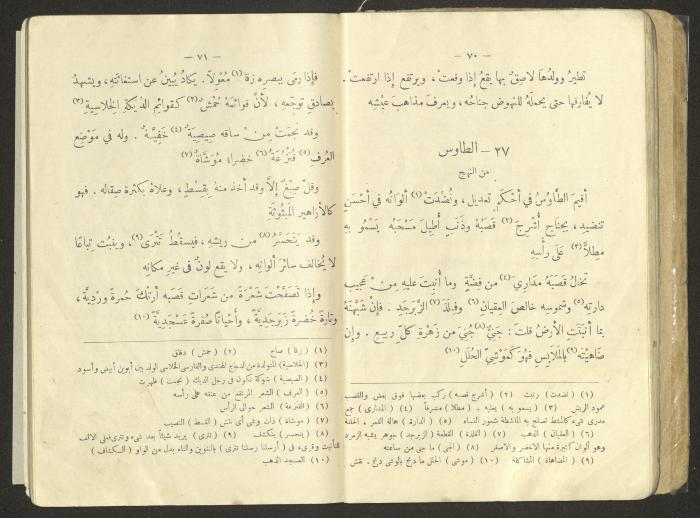 — ٧٠ —
تطيرُ وولدُهَا لاصقٌ بها يقعُ إذا وقعتْ ، ويرتفع إذا ارتفعتْ .
لا يُفارقها حتى يحملَهُ للنهوض جناحُه ، ويعرفَ مذاهبَ عيشِهِ
٢٧ – الطاوس
من النهج
أقيمَ الطَّاوُسُ في أحْكَمِ تعديل ، ونُضِّدَتْ (١) ألوانُه في أحْسَنِ
تنضيدٍ ، بجناحٍ أُشْرِجَ (٢) قَصَبُهُ وذَنَبٍ أُطيلَ مَسْحَبُه يَسْمُو بهِ
مطِلاًّ (٣) عَلَى رأْسِهِ
تخالُ قصبَهُ مَدَارِيَ (٤) من فِضَّةٍ وما أُنْبِتَ عليه مِنْ عَجيبِ
دارتِه (٥) وشموسِه خالصَ العِقيانِ (٦) وفِلَذَ (٧) الزَّبَرْجَدِ . فإنْ شَبَّهْتَهُ
بما أَنْبَتَتِ الأرضُ قلتَ : جَنىً (٨) جُنِيَ من زَهْرَةِ كلِّ ربيعٍ . وإن
ضَاهَيْتَه (٩) بالمَلَابِسِ فهو كَمَوْشِيِّ الحُلَلِ (١٠)
(١) نضدت ) رتبت (٢) ( أشرج قصبه ) ركب بعضها فوق بعض والقصب
عمود الريش (٣) ( يسمو به ) يعليه ، ( مطلا ) مشرفا (٤) ( المداري ) جمع
مدرى شيء كالمشط تصلح به الماشطة شعور النساء (٥) ( الدارة ) هالة القمر ، الحلقة
(٦) ( العقيان ) الذهب (٧) ( الفلذة ) القطعة ( الزبرجد ) جوهر يشبه الزمرد
وهو ألوان كثيرة منها الأخضر والأصفر (٨) ( الجنى ) ما جني من ساعته
(٩) ( المضاهاة ) المشاكلة (١٠) ( موشى ) الحلل ما دبج بالوشي دبج . نقش
— ٧١ —
فإذا رمَى ببصرِه زقا (١) مُعْوِلاً . يكادُ يُبينُ عن استغاثتِه ، ويشهدُ
بصادقِ توجُّعِه ، لأنَّ قوائمَهُ حُمْشٌ (٢) كقوائِمِ الدِّيكةِ الخلاسيةِ (٣)
وقد نَجَمَتْ مِنْ ساقِه صِيصِيَةٌ (٤) خَفِيَّةٌ . وله في مَوْضِعِ
العُرفِ (٥) قُنْزُعَةٌ (٦) خضراءُ مُوَشَّاةٌ (٧)
وقلَّ صِبْغٌ إلاَّ وقد أخذ منهُ بِقِسْطٍ ، وعلاهُ بكثرةِ صِقاله . فهو
كالأزاهيرِ المَبْثُوثَةِ
وقد يَتَحَسَّرُ (٨) من ريشِهِ ، فيسقُطُ تَتْرَى (٩) ، وينبُت تِباعًا
لا يُخالف سائرَ ألوانِه ، ولا يقع لونٌ في غيرِ مكانِه
وإذا تَصَفَّحْتَ شَعْرَةً من شَعَرَاتِ قَصَبِه أرَتْكَ حُمرةً ورْدِيةً ،
وتارةً خُضرَةً زَبَرْجَدِيَّةً ، وأحْيانًا صُفرةً عَسْجَدِيَّةً (١٠)
(١) ( زقا ) صاح (٢) ( حمش ) دقاق
(٣) ( الخلاسية ) المتولدة من الدجاج الهندي والفارسي الخلاسي الولد بين أبوين أبيض وأسود
(٤) ( الصيصية ) شوكة تكون في رجل الديك ( نجمت ) ظهرت
(٥) ( العرف ) الشعر المرتفع من عنقه على رأسه
(٦) ( القنزعة ) الشعر حوالي الرأس
(٧) ( موشاة ) ذات وشي أي نقش ( القسط ) النصيب
(٨) ( يتحسر ) يتكشف (٩) ( تترى ) يريد شيئاً بعد شيء وتترى فعلى الالف
للتأنيث وقرىء في ( أرسلنا رسلنا تترى ) بالتنوين والتاء بدل من الواو ( الكشاف )
(١٠) العسجد الذهب